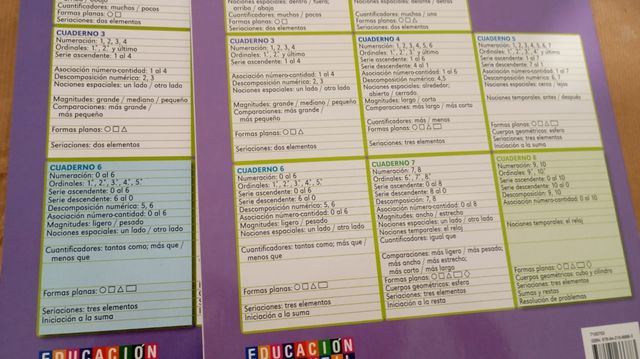 Cuantificadores: muchos / pocos
Formas planas: ○□
Seriaciones: dos elementos
CUADERNO 3
Numeración: 1, 2, 3, 4
Ordinales: 1°, 2° y último
Serie ascendente: 1 al 4
Asociación número-cantidad: 1 al 4
Descomposición numérica: 2, 3
Nociones espaciales: un lado / otro lado
Magnitudes: grande / mediano / pequeño
Comparaciones: más grande /
más pequeño
Formas planas: ○□△
Seriaciones: dos elementos
CUADERNO 6
Numeración: 0 al 6
Ordinales: 1°, 2°, 3°, 4°, 5°
Serie ascendente: 0 al 6
Serie descendente: 6 al 0
Descomposición numérica: 5, 6
Asociación número-cantidad: 0 al 6
Magnitudes: ligero / pesado
Nociones espaciales: un lado / otro lado
Cuantificadores: tantos como; más que /
menos que
Formas planas: ○□△▭
Seriaciones: tres elementos
Iniciación a la suma
EDUCACIÓN
Nociones espaciales: dentro / fuera;
arriba / abajo
Cuantificadores: muchos / pocos
Formas planas: ○□
Seriaciones: dos elementos
Nociones espaciales: delante / detrás
Cuantificadores: muchos / uno
Formas planas: ○□△
Seriaciones: dos elementos
CUADERNO 3
Numeración: 1, 2, 3, 4
Ordinales: 1°, 2° y último
Serie ascendente: 1 al 4
Asociación número-cantidad: 1 al 4
Descomposición numérica: 2, 3
Nociones espaciales: un lado / otro lado
Magnitudes: grande / mediano / pequeño
Comparaciones: más grande /
más pequeño
Formas planas: ○□△
Seriaciones: dos elementos
CUADERNO 4
Numeración: 1, 2, 3, 4, 5, 6
Ordinales: 1°, 2°, 3° y último
Serie ascendente: 1 al 6
Serie descendente: 4 al 1
Asociación número-cantidad: 1 al 6
Descomposición numérica: 4,5
Nociones espaciales: alrededor;
abierto / cerrado
Magnitudes: largo / corto
Comparaciones: más largo / más corto
Cuantificadores: más / menos
Formas planas: ○□△▭
Seriaciones: tres elementos
CUADERNO 5
Numeración: 1, 2, 3, 4, 5, 6, 7
Ordinales: 1°, 2°, 3°, 4° y último
Serie ascendente: 1 al 7
Serie descendente: 7 al 1
Asociación número-cantidad: 1 al 7
Descomposición numérica: 6, 7
Nociones espaciales: cerca / lejos
Nociones temporales: antes / después
Formas planas: ○□△▭
Cuerpos geométricos: esfera
Seriaciones: tres elementos
Iniciación a la suma
CUADERNO 6
Numeración: 0 al 6
Ordinales: 1°, 2°, 3°, 4°, 5°
Serie ascendente: 0 al 6
Serie descendente: 6 al 0
Descomposición numérica: 5, 6
Asociación número-cantidad: 0 al 6
Magnitudes: ligero / pesado
Nociones espaciales: un lado / otro lado
Cuantificadores: tantos como; más que /
menos que
Formas planas: ○□△▭
Seriaciones: tres elementos
Iniciación a la suma
CUADERNO 7
Numeración: 7, 8
Ordinales: 6°, 7°, 8°
Serie ascendente: 0 al 8
Serie descendente: 8 al 0
Descomposición: 7, 8
Asociación número-cantidad: 0 al 8
Magnitudes: ancho / estrecho
Nociones espaciales: un lado / otro lado
Nociones temporales: el reloj
Cuantificadores: igual que
Comparaciones: más ligero / más pesado;
más ancho / más estrecho;
más corto / más largo
Formas planas: ○□△▭◇
Cuerpos geométricos: esfera
Seriaciones: tres elementos
Iniciación a la resta
CUADERNO 8
Numeración: 9, 10
Ordinales: 9°, 10°
Serie ascendente: 0 al 10
Serie descendente: 10 al 0
Descomposición: 9, 10
Asociación número-cantidad: 0 al 10
Nociones temporales: el reloj
Formas planas: ○□△▭◇
Cuerpos geométricos: cubo y cilindro
Seriaciones: tres elementos
Sumas y restas
Resolución de problemas
EDUCACIÓN